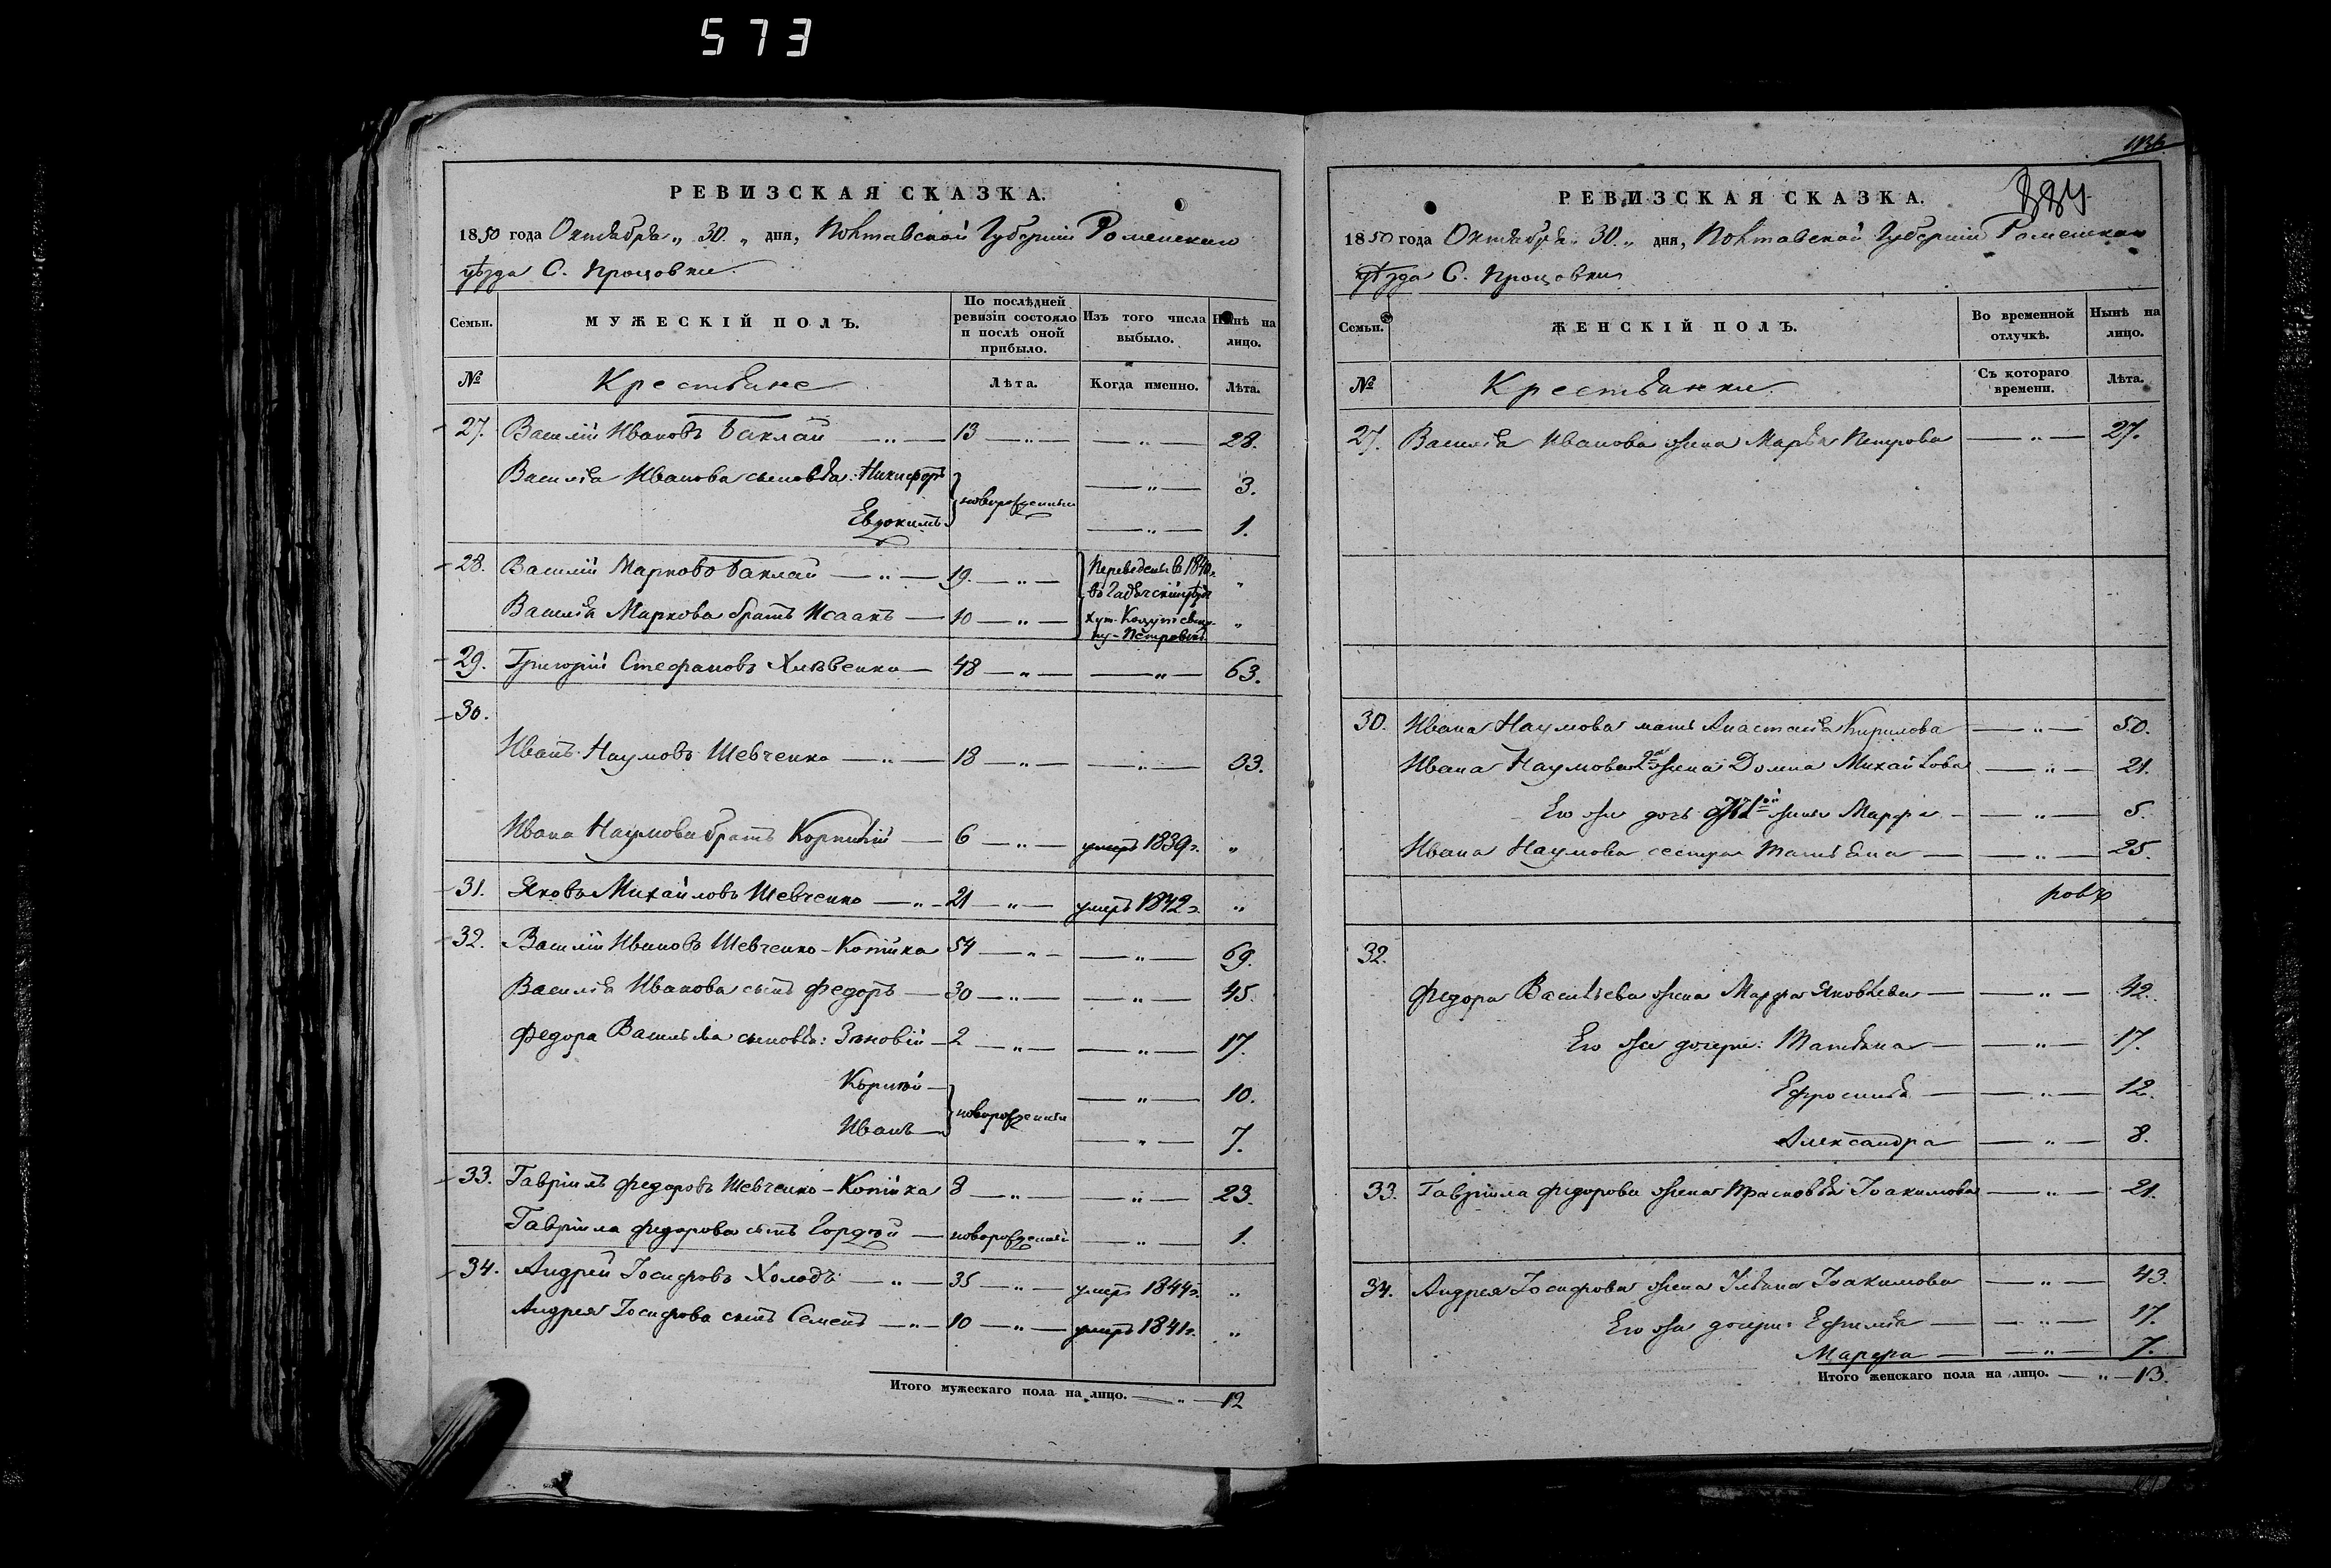 573
РЕВИЗСКАЯ СКАЗКА.
1850 года Октября „ 30. „ дня, Полтавской Губерніи Роменскаго
уѣзда С. Процовки.
Семьи. МУЖЕСКІЙ ПОЛЪ. По послѣдней ревизіи состояло и послѣ оной прибыло. Изъ того числа выбыло. Нынѣ на лицо.
№ Крестьяне Лѣта. Когда именно. Лѣта.
27. Василій Ивановъ Баклай — „ — 13 — „ — — „ — 28.
Василія Иванова сыновья: Никифоръ новорожденные — „ — 3.
Евдокимъ — „ — 1.
28. Василій Марковъ Баклай — „ — 19. — „ — Переведены в 1840 г. „
въ Гадячскій уѣздъ
Василія Маркова братъ Исаакъ — 10 — „ — хут. „
Петровкѣ
29. Григорій Стефановъ Хлѣвенко — 48 — „ — — „ — 63.
30.
Иванъ Наумовъ Шевченко — „ — 18 — „ — — „ — 33.
Ивана Наумова братъ Корнилій — 6 — „ — умеръ 1839 г. „
31. Яковъ Михайловъ Шевченко — „ — 21 — „ — умеръ 1842 г. „
32. Василій Ивановъ Шевченко-Копійка 54 — „ — — „ — 69.
Василія Иванова сынъ Федоръ — 30 — „ — — „ — 45.
Федора Васильева сыновья: Зиновій — 2 — „ — — „ — 17.
Корнѣй — новорожденные — „ — 10.
Иванъ — — „ — 7.
33. Гавріилъ Федоровъ Шевченко-Копійка 8 — „ — — „ — 23.
Гавріила Федорова сынъ Гордѣй — новорожденный — „ — 1.
34. Андрей Іосифовъ Холодъ — „ — 35 — „ — умеръ 1844 г. „
Андрея Іосифова сынъ Семенъ — „ — 10 — „ — умеръ 1841 г. „
Итого мужескаго пола на лицо. — „ — 12
1136
884
РЕВИЗСКАЯ СКАЗКА.
1850 года Октября „ 30. „ дня, Полтавской Губерніи Роменскаго
уѣзда С. Процовки
Семьи. ЖЕНСКІЙ ПОЛЪ. Во временной отлучкѣ. Нынѣ на лицо.
№ Крестьянки Съ котораго времени. Лѣта.
27. Василія Иванова жена Марья Петрова — „ — 27.
30. Ивана Наумова мать Анастасія Кирилова — „ — 50.
Ивана Наумова 2я жена Домна Михайлова — „ — 21.
Его же дочь жены Марфа — — „ — 5.
Ивана Наумова сестра Татьяна — — „ — 25.
32.
Федора Васильева жена Марфа Яковлева — — „ — 42.
Его же дочери: Татьяна — — „ — 17.
Ефросинія — — „ — 12.
Александра — — „ — 8.
33. Гавріила Федорова жена Прасковья Іоакимова — „ — 21.
34. Андрея Іосифова жена Ульяна Іоакимова — „ — 43.
Его же дочери: Ефимія — — „ — 17.
Марфа — — „ — 7.
Итого женскаго пола на лицо. — „ — 13.